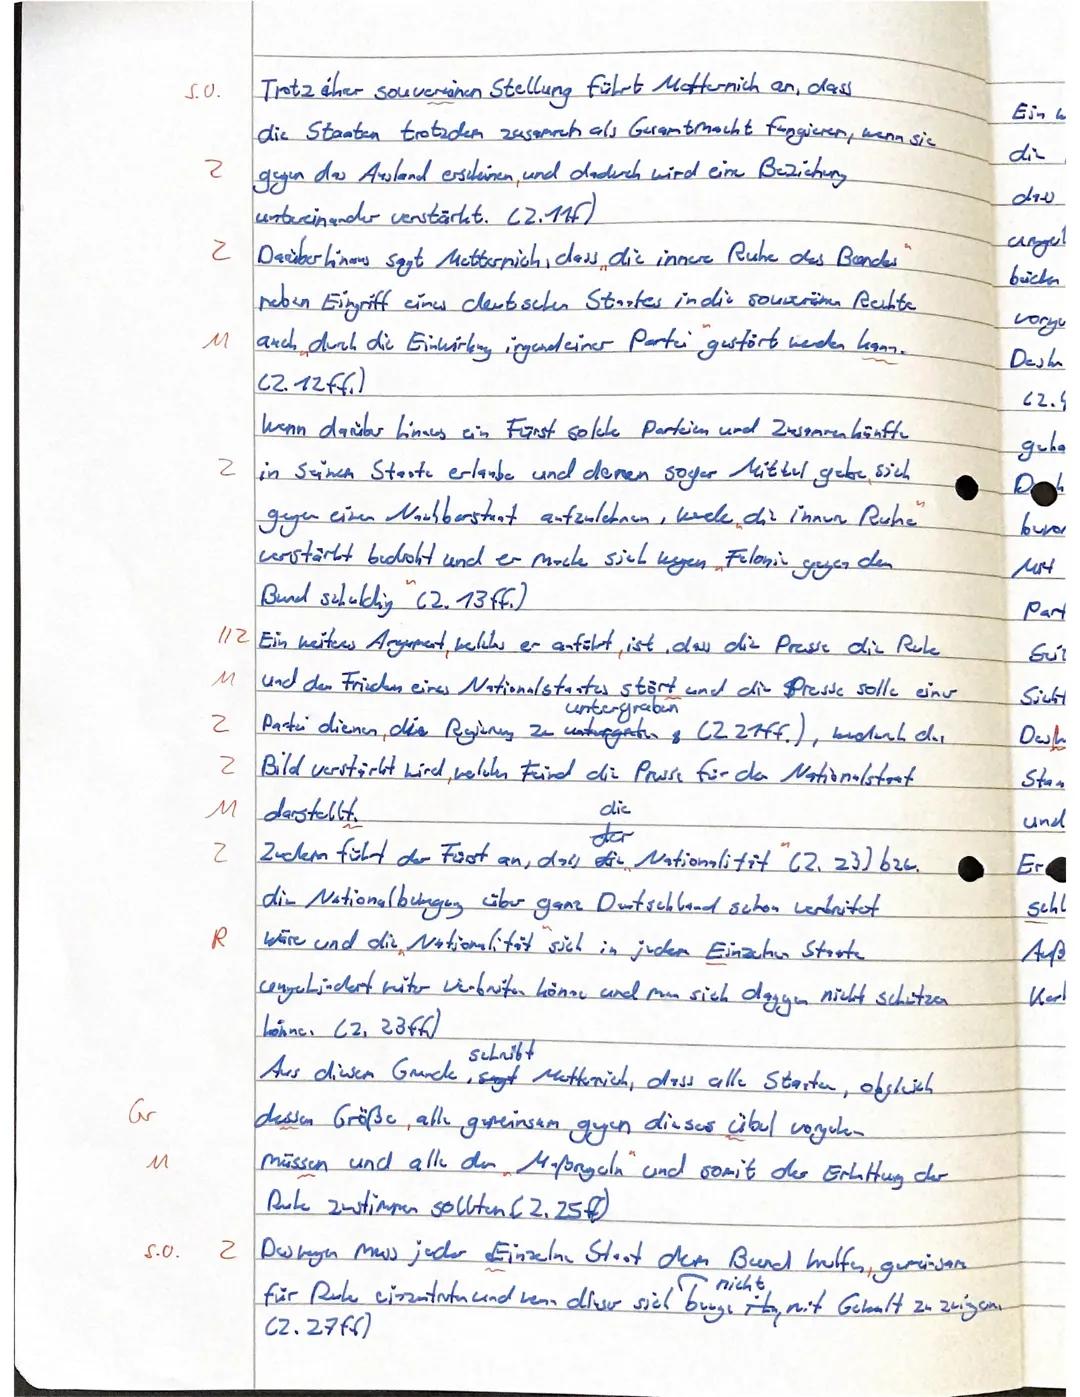 s.o. Trotz ihrer souveränen Stellung führt Metternich an, dass
die Staaten trotzdem zusammen als Gesamtmacht fungieren, wenn sie
Z gegen das Ausland erscheinen, und dadurch wird eine Beziehung
untereinander verstärkt. (Z.11f)
Z Darüber hinaus sagt Metternich, dass „die innere Ruhe des Bundes"
neben Eingriff eines deutschen Staates in die souveränen Rechte
M auch „durch die Einwirkung irgendeiner Partei" gestört werden kann.
(Z.12ff.)
Wenn darüber hinaus ein Fürst solche Parteien und Zusammenkünfte
Z in seinem Staate erlaube und denen sogar Mittel gebe, sich
gegen einen Nachbarstaat aufzulehnen, werde „die innere Ruhe"
verstärkt bedroht und er mache sich wegen „Felonie gegen den
Bund schuldig" (Z.13ff.)
11Z Ein weiteres Argument, welches er anführt, ist, dass die Presse die Ruhe
M und den Frieden eines Nationalstaates stört und die Presse solle einer
untergraben
Z Partei dienen, die Regierung zu (Z.21ff.), wodurch das
Z Bild verstärkt wird, welchen Feind die Presse für den Nationalstaat
M darstellt.
die
der
Z Zudem führt der Fürst an, dass die „Nationalität" (Z. 23) bzw.
die Nationalbewegung über ganz Deutschland schon verbreitet
R wäre und die „Nationalität" sich in jedem Einzelnen Staate
ungehindert weiter verbreiten könne und man sich dagegen nicht schützen
könne. (Z. 23ff)
schreibt
Aus diesem Grunde, sagt Metternich, dass alle Staaten, obgleich
Gr dessen Größe, alle gemeinsam gegen dieses Übel vorgehen
M müssen und alle den „Maßregeln" und somit der Erhaltung der
Ruhe zustimmen sollten (Z.25f)
s.o. Z Deswegen muss jeder Einzelne Staat dem Bund helfen, gemeinsam
nicht
für Ruhe einzutreten und wenn dieser sich beuge, mit Gewalt zu zwingen.
(Z.27ff)
Ein
die
das
vorge
Desh
(Z.
Part
Sicht
Desh
und
Er
schl
Auß